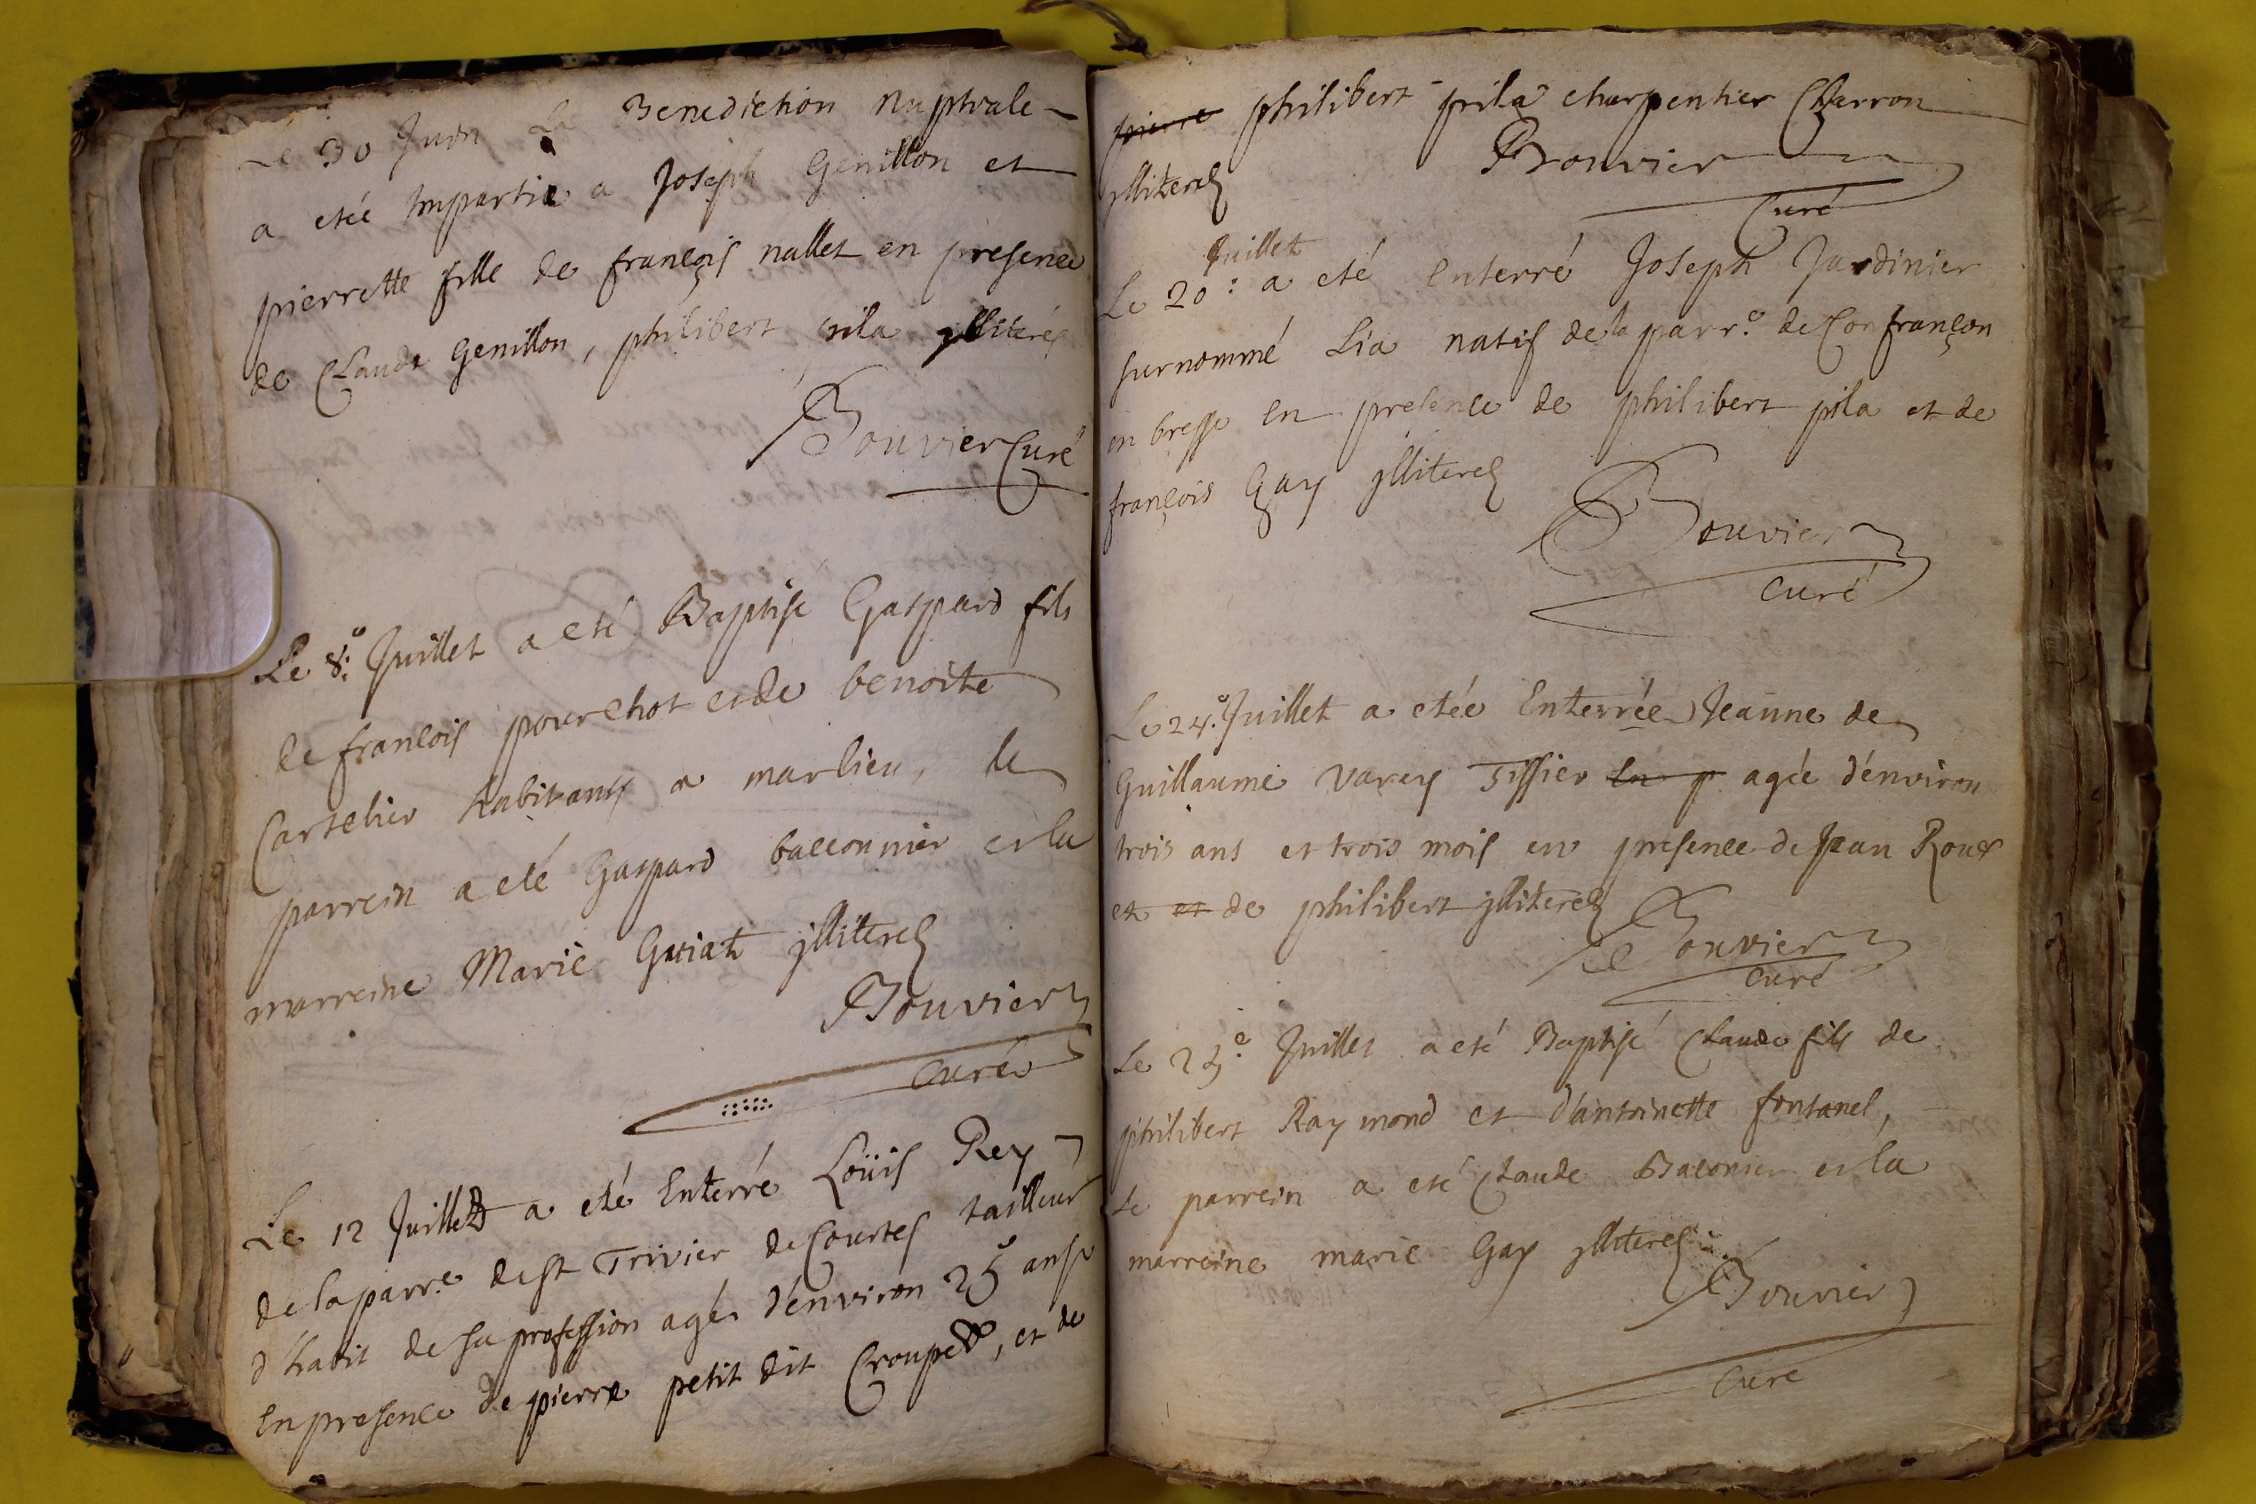 Le 30 Juin La Benediction Nuptvale
a eteé Impartie a Joseph Genillon et
pierrette fille de françois nallet en presence
de Claude Genillon, philibert pila jlliterés
Bouvier Curé
Le 8.e Juillet a eté Baptisé Gaspard fils
de francois pourchot et de benoite
Cartelier habitants a marlieu, le
parrein a eté Gaspard bacconnier et la
marreine Marie Guriat jlliterés
Bouvier
Curé
Le 12 Juillet a eté Enterré Loüis Rey
de la parr.e de st Trivier de Courtes tailleur
d'habit de sa profession agés d'environ 25 ans
en presence de pierre petit dit Croupet, et de
pierre philibert pila charpentier Charron
jlliterés Bouvier
Curé
Juillet
Le 20: a eté Enterré Joseph Jardinier
surnommé Lia natif de la parr.e de Confrançon
en bresse en presence de philibert pila et de
françois Gay jlliterés
Bouvier
Curé
Le 24.e Juillet a eteé Enterrée Jeanne de
Guillaume Varey Tissier en p agée d'environ
trois ans et trois mois en presence de Jean Roux
et et de philibert jlliterés
Bouvier
Curé
Le 25.e Juillet a eté Baptisé Claude fils de
philibert Raymond et d'antoinette fontanel,
le parrein a eté Claude Baconier et la
marreine marie Gay jlliterés
Bouvier
Curé